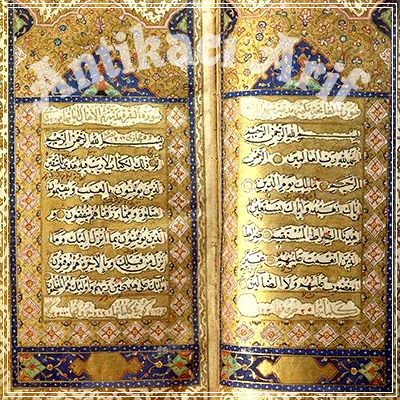 Antikacı Arif
بسم الله الرحمن الرحيم
الحمد لله رب العالمين الرحمن
الرحيم مالك يوم الدين
اياك نعبد واياك نستعين
اهدنا الصراط المستقيم صراط
الذين انعمت عليهم غير
المغضوب عليهم ولا الضالين
بسم الله الرحمن الرحيم
الم ذلك الكتاب لا ريب فيه هدى للمتقين
الذين يؤمنون بالغيب ويقيمون
الصلوة ومما رزقناهم ينفقون و
الذين يؤمنون بما انزل اليك وما
انزل من قبلك وبالاخرة هم يوقنون
اولئك على هدى من ربهم واولئك